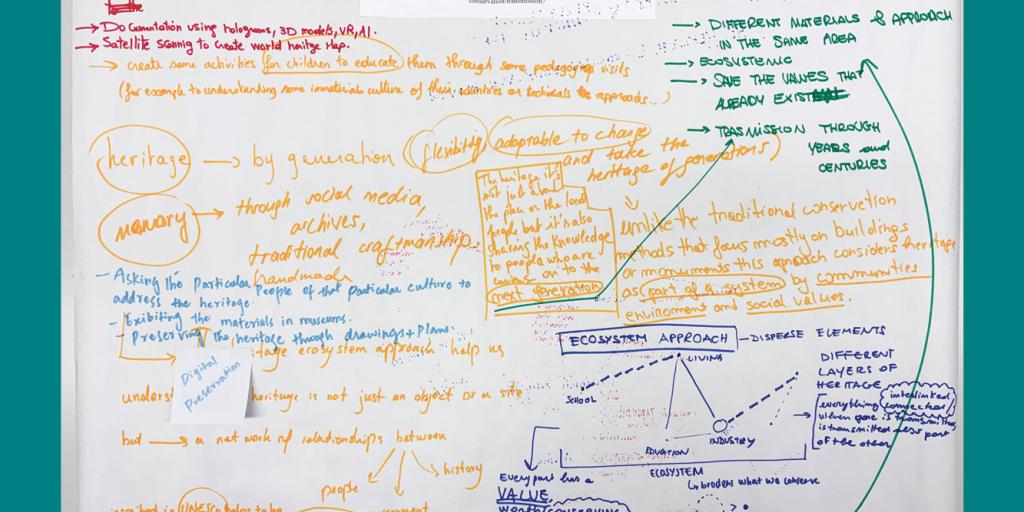 conservation/transmission?
→ Documentation using holograms, 3D models, VR, AI.
→ Satellite scanning to create world heritge Map.
→ create some activities for children to educate them through some pedagogig visits
(for example to understanding some immaterial culture of their countries or technicals & approads...)
→ DIFFERENT MATERIALS & APPROACH
IN THE SAME AREA
→ ECOSYSTEMIC
→ SAVE THE VALUES THAT
ALREADY EXIST
→ TRASMISSION THROUGH
YEARS and
CENTURIES
heritage → by generation (flexibility, adaptable to change
and take the
heritage of generations)
memory → through social media,
archives,
traditional craftmanship.
handmade
The heritage it's
not just about
the place or the local
people but it's also
sharing the knowledge
to people who are
on to the
next generation
unlike the traditional conservetion
methods that focus mostly on buildings
or monuments this aproach considers heritage
as part of a system by communities
enviroment and social values.
- Asking the Particular People of that particular culture to
address the heritage.
- Exibiting the materials in museums.
- Preserving the heritage through drawings + plans.
Digital
Preservation
tage ecosystem approach help us
unders heritage is not just an object or a site
but → a net work of relationships between
people
history
UNESCO helps to be
ECOSYSTEM APPROACH - DISPERSE ELEMENTS
LIVING
SCHOOL
INDUSTRY
EDUATION
ECOSYSTEM
↳ broders what we conserve
DIFFERENT
LAYERS OF
HERITAGE
interlinked
everything connected
when one is transmitted
is transmitted also part
of the other
Every part has a
VALUE,
worth conserving